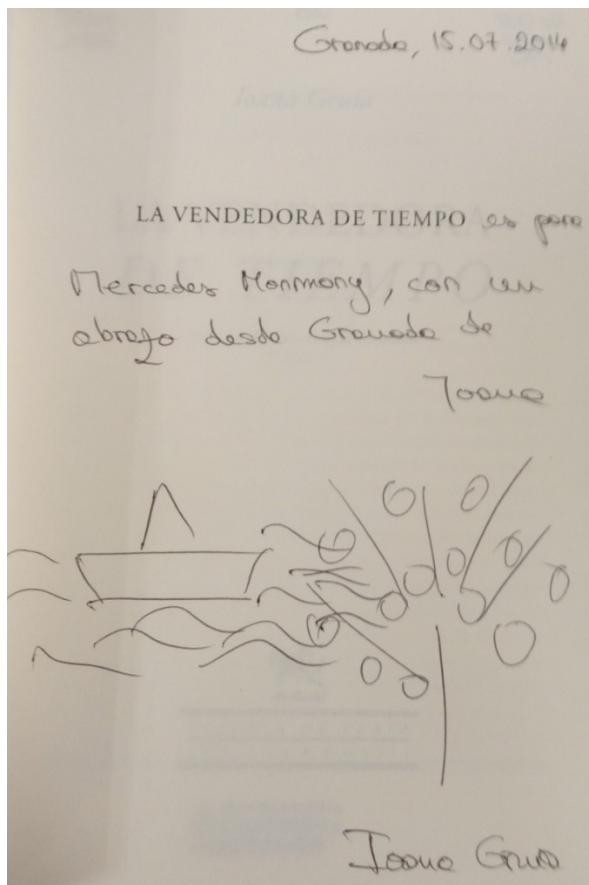 Granada, 15.07.2014
LA VENDEDORA DE TIEMPO es para
Mercedes Monmany, con un
abrazo desde Granada de
Ioana
Ioana Gruia